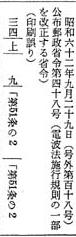 昭和六十二年九月二十九日 (号外第百十八号)
公布郵政省令第四十八号 (電波法施行規則の一部
を改正する省令)
(印刷誤り)
三四 上 九 「第51条の2 「第51条の2